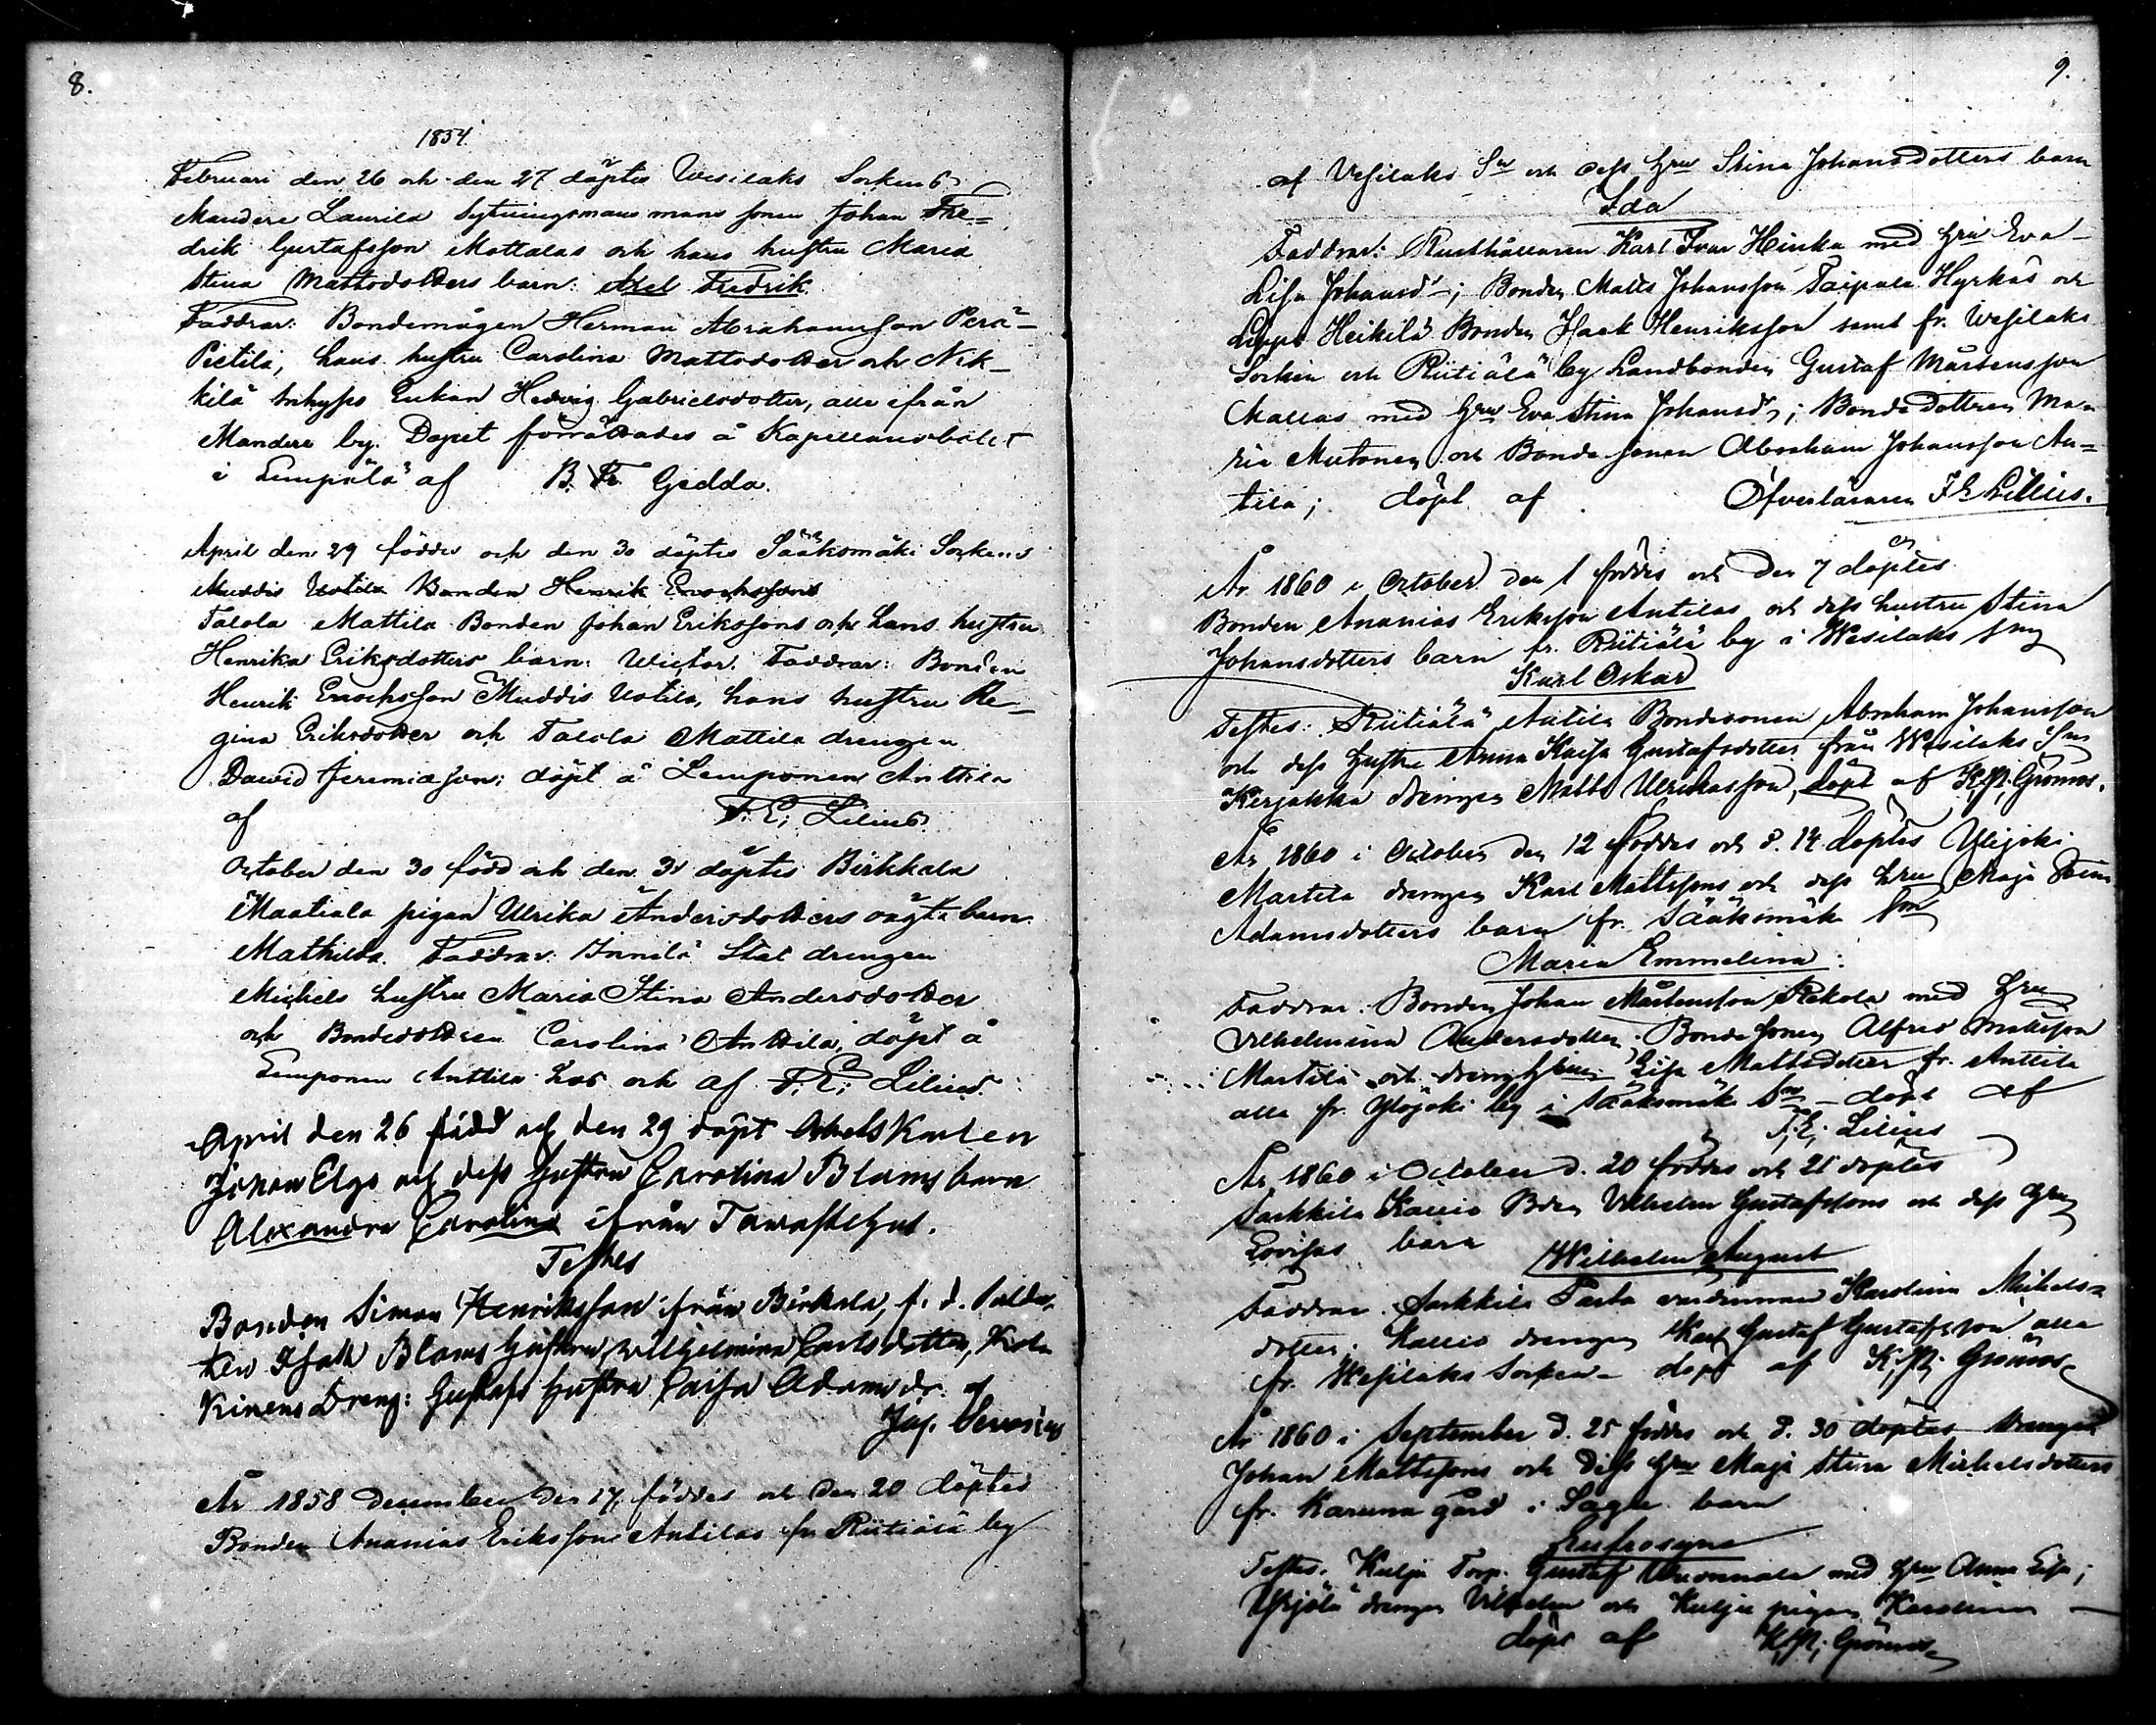 8.
1854.
Februari den 26 och den 27 döptes Wesilaks Sockens
Mandere Laurila Sytningsmans mans sonen Johan Fre=
drik Gustafsson Mattalas och hans hustru Maria
Stina Mattsdotters barn: Axel Fredrik.
Faddrar: Bondemågen Herman Abrahamsson Perä-
Pietilä, hans hustru Carolina Mattsdotter och Nik-
kilä Inhyses Enkan Hedvig Gabrielsdotter, alla ifrån
Mandere by. Dopet förrättades å Kapellansbolet
i Lempälä af B. Fr. Gedda.
April den 29 föddes och den 30 döptes Sääksmäki Sockens
Muddis Uotila Bonden Henrik Enochssons
Talola Mattila Bonden Johan Erikssons och hans hustru
Henrika Eriksdotters barn: Wictor. Faddrar: Bonden
Henrik Enochsson Muddis Uotila, hans hustru Re-
gina Eriksdotter och Talola Mattila drengen
Dawid Jeremiasson; döpt å Lemponen Anttila
af F. E. Lilius.
October den 30 född och den 31 döptes Birkkala
Maatiala pigan Ulrika Andersdotters oägta barn.
Mathilda. Faddrar: Innilä Stat drengen
Michels hustru Maria Stina Andersdotter
och Bondedottren Carolina Anttila; döpt å
Lemponen Anttila hos och af F. E. Lilius.
April den 26 född och den 29 döpt Karlen
Johan Elgs och dess hustru Carolina Bloms barn
Alexandra Carolina ifrån Tawastehus.
Testes
Bonden Simon Henriksson ifrån Birkala, f. d. Solda-
ten Isak Bloms hustru, Willhelmina Carlsdotter,
Kinens Dreng: Gustafs hustru Caisa Adamsdr. af
Jag. Servenius
År 1858 december den 17 föddes och den 20 döptes
Bonden Ananias Eriksson Antilas fr. Riitiälä by
9.
af Vesilaks Sn och dess hru Stina Johansdotters barn
Ida
Faddrar: Rusthållaren Karl Ivar Heikka med hru Eva
Lisa Johansd.; Bonden Matts Johansson Taipale Hyrkäs och
Heikilä Bonden Isaak Henriksson samt fr. Wesilaks
Socken och Riitiälä by Landbonden Gustaf Mårtensson
Mallas med hru Eva Stina Johansd.; Bondedottren Ma-
ria Mutanen och Bondesonen Abraham Johansson An=
tila; döpt af Öfverläraren F. E. Lilius.
År 1860 i October den 1 föddes och den 7 döptes
Bonden Ananias Eriksson Antilas och dess hustru Stina
Johansdotters barn fr. Riitiälä by i Wesilaks sn
Karl Oskar
Testes: Riitiälä Antila Bondesonen Abraham Johansson
och dess hustru Anna Kaisa Gustafsdotter från Wesilaks Sn
Kirjakka drengen Matts Ulrikasson, döpt af K. R. Grönros.
År 1860 i October den 12 föddes och d. 14 döptes Ylijoki
Martila drengen Karl Mattssons och dess hru Maja Stina
Adamsdotters barn fr. Sääksmäki sn
Maria Emmelina:
Faddrar: Bonden Johan Mårtensson Rekola med hru
Vilhelmina Andersdotter. Bondesonen Alfred Mattsson
Martila och Lisa Mattsdotter fr. Anttila
alla fr. Ylöjoki by i Sääksmäki Sn - döpt af
F. E. Lilius
År 1860 i October d. 20 föddes och 21 döptes
Sarkkila Kallio Bden Vilhelm Gustafssons och dess hru
Lovisas barn Wilhelm August
Faddrar: Sarkkila värdinnan Karolina Mikels-
dotter; Kallio drengen Karl Gustaf Gustafsson alla
fr. Wesilaks Socken - döpt af K. R. Grönros
År 1860 i September d. 25 föddes och d. 30 döptes drengen
Johan Mattssons och dess hru Maja Stina Michelsdotters
fr. Karuna gård i Sagu barn
Eufrosyne
Testes. Kulju Torp. Gustaf med hru Anna Lisa;
drengen Vilhelm och Kulju pigan Karolina
döpt af K. R. Grönros